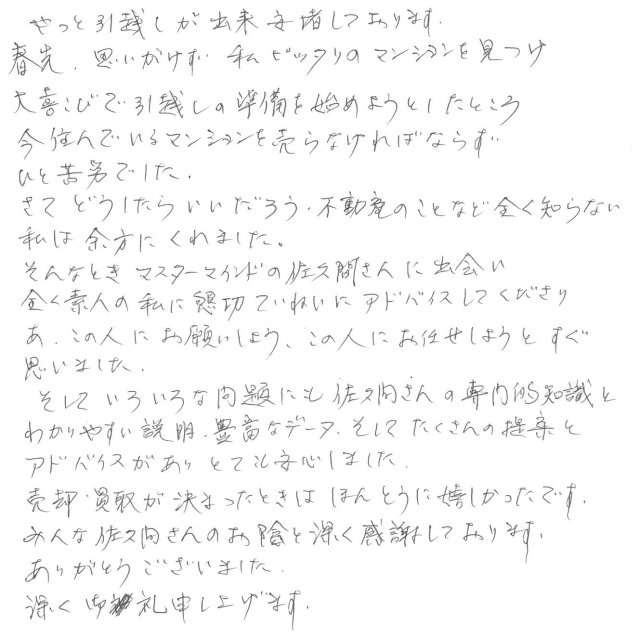 やっと引越しが出来安堵しております.
春先、思いがけず 私ピッタリのマンションを見つけ
大喜こびで引越しの準備を始めようとしたところ
今住んでいるマンションを売らなければならず
ひと苦労でした.
さて どうしたらいいだろう.不動産のことなど全く知らない
私は 余方にくれました。
そんなとき マスターマインドの佐久間さんに出会い
全く素人の私に懇切ていねいにアドバイスしてくださり
あ、この人にお願いしよう、この人にお任せしようと すぐ
思いました.
そして いろいろな問題にも 佐久间さんの専门的知識と
わかりやすい説明、豊富なデータ、そして たくさんの提案と
アドバイスがあり とても安心しました.
売却、買取が決まったときは ほんとうに嬉しかったです.
みんな佐久间さんのお陰と深く感謝しております.
ありがとうございました.
深く御礼申し上げます.